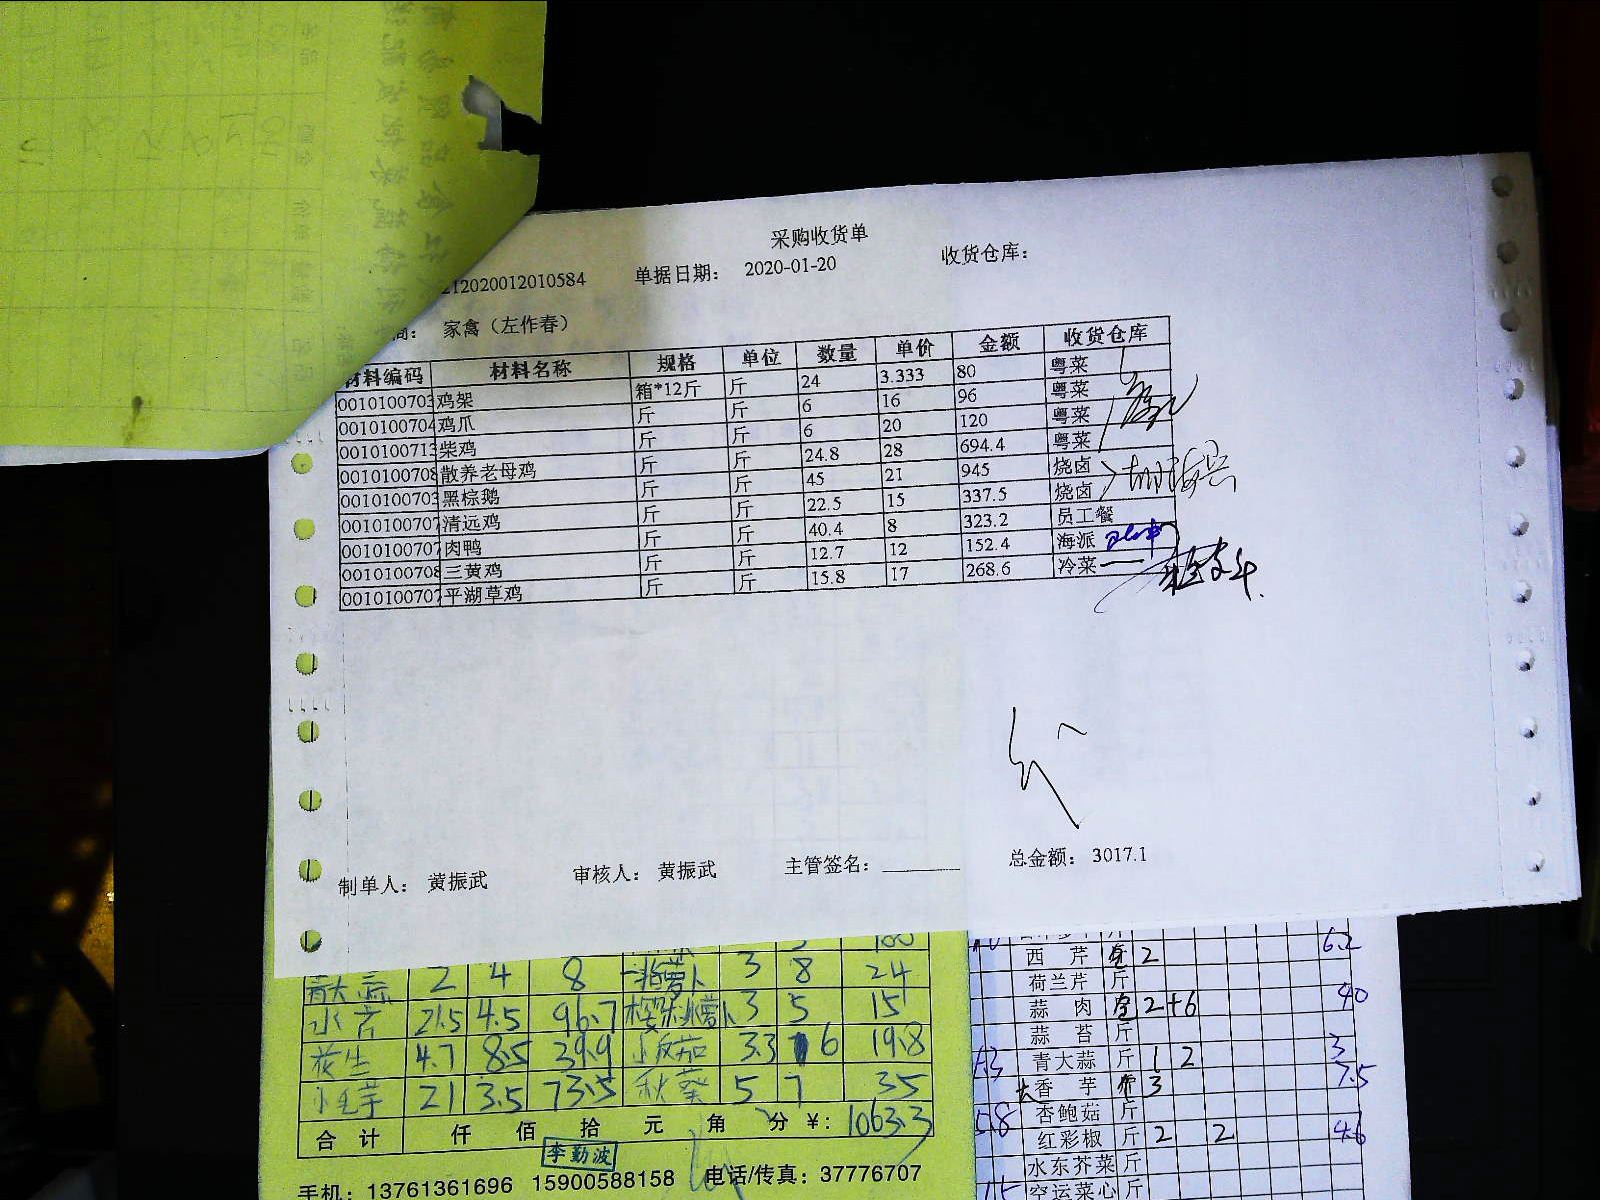 采购收货单
212020012010584 单据日期： 2020-01-20 收货仓库：
商： 家禽（左作春）
材料编码 材料名称 规格 单位 数量 单价 金额 收货仓库
0010100703 鸡架 箱*12斤 斤 24 3.333 80 粤菜
0010100704 鸡爪 斤 斤 6 16 96 粤菜
0010100713 柴鸡 斤 斤 6 20 120 粤菜
0010100708 散养老母鸡 斤 斤 24.8 28 694.4 粤菜
0010100703 黑棕鹅 斤 斤 45 21 945 烧卤
0010100707 清远鸡 斤 斤 22.5 15 337.5 烧卤
0010100707 肉鸭 斤 斤 40.4 8 323.2 员工餐
0010100708 三黄鸡 斤 斤 12.7 12 152.4 海派
0010100707 平湖草鸡 斤 斤 15.8 17 268.6 冷菜
制单人： 黄振武 审核人： 黄振武 主管签名： 总金额： 3017.1
青大蒜 2 4 8 3 8 24
水芹 21.5 4.5 96.7 樱桃萝卜 3 5 15
花生 4.7 8.5 39.9 3.3 6 19.8
小毛芋 21 3.5 73.5 秋葵 5 7 35
合计 仟 佰 拾 元 角 分 ¥: 1063.3
李勤波
手机：13761361696 15900588158 电话/传真：37776707
西芹 2 6.2
荷兰芹 斤
蒜肉 2+6 40
蒜苔 斤
青大蒜 斤 1 2 3
大香芋 3 7.5
杏鲍菇 斤
红彩椒 斤 2 2 4.6
水东芥菜 斤
空运菜心 斤